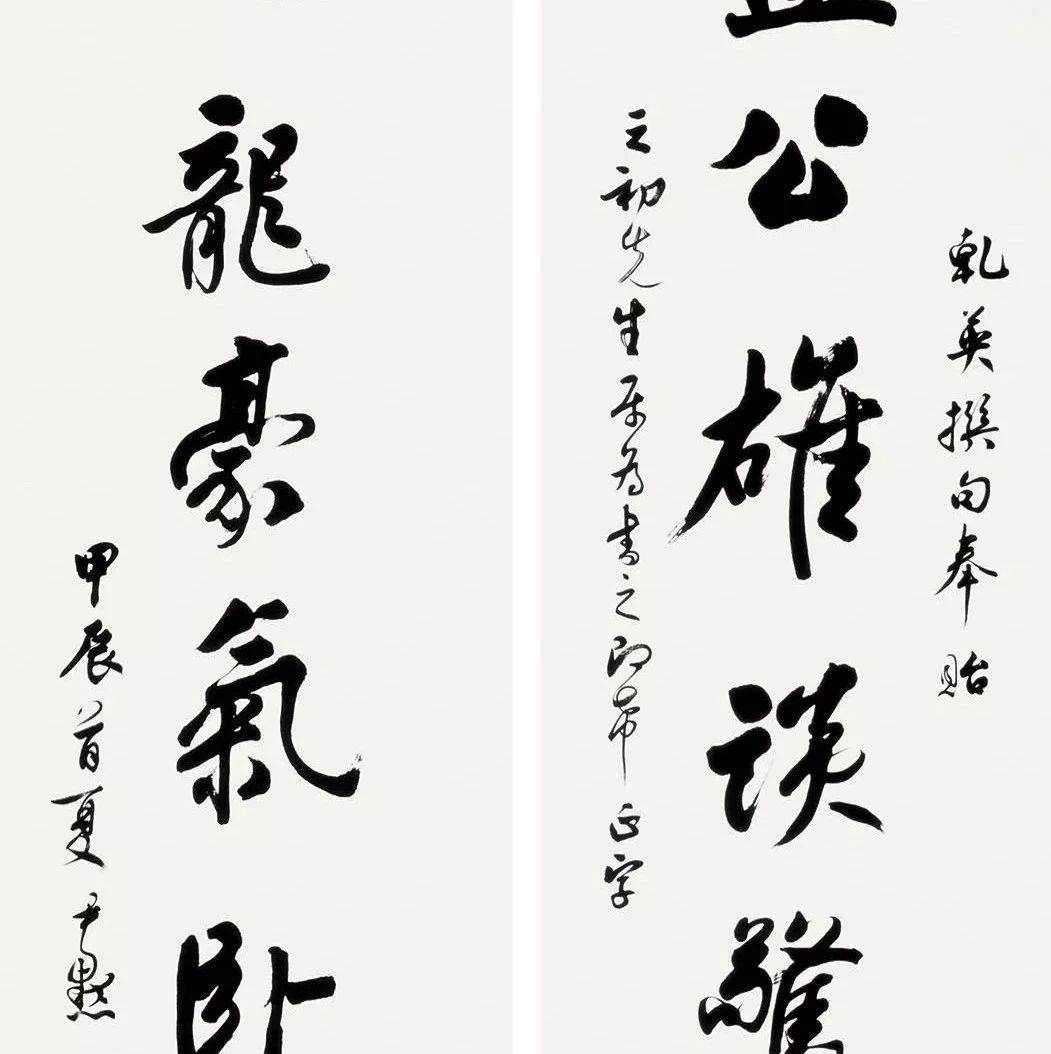 乾英撰句奉貽
公雄談
初先生属為書之即希正字
龍豪氣卧
甲辰首夏尹默